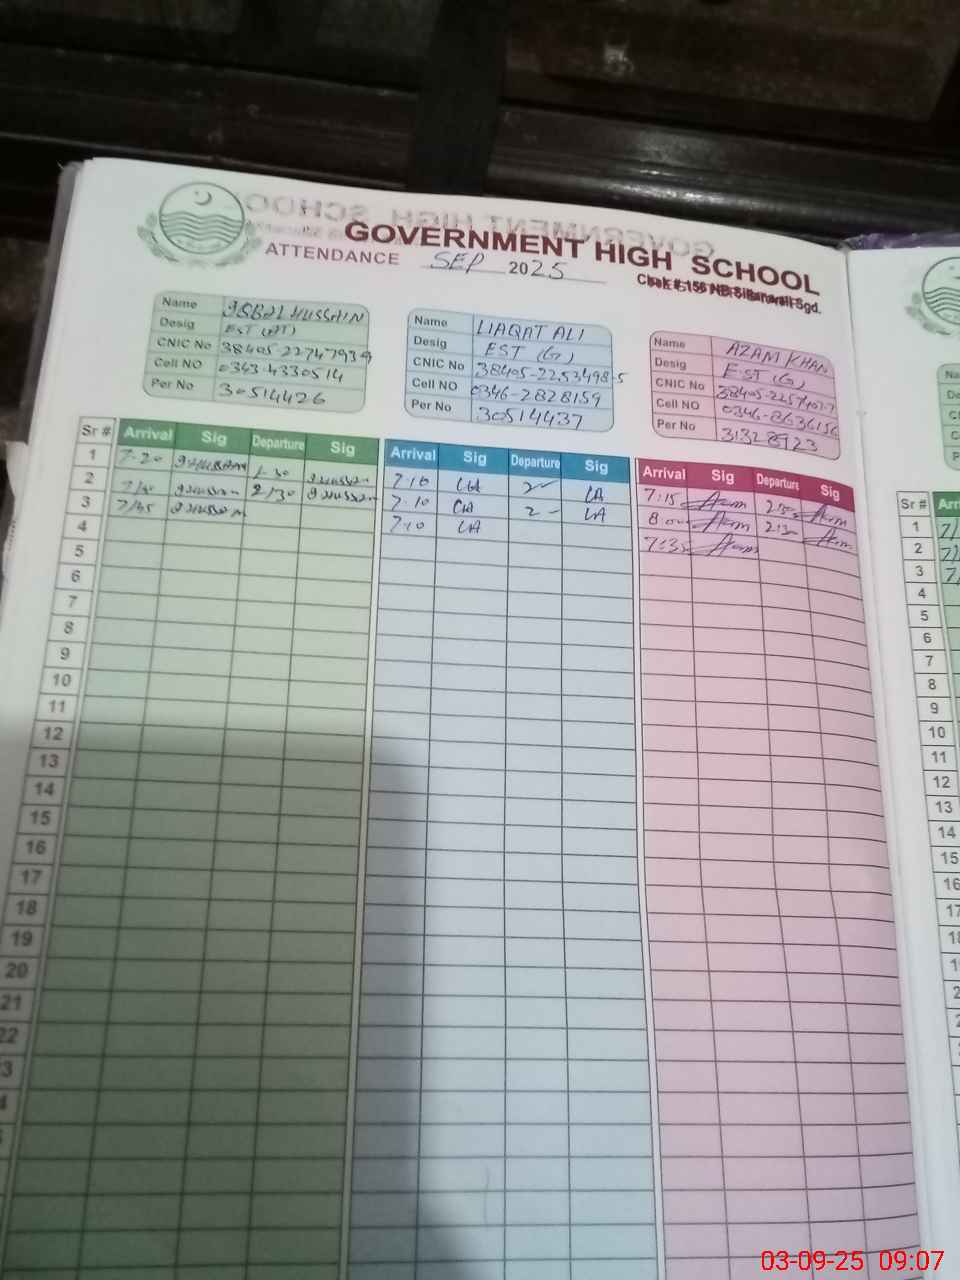 GOVERNMENT HIGH SCHOOL
ATTENDANCE SEP 2025
Chak # 156 NB Sillanwali Sgd.
Name IQBAL HUSSAIN
Desig EST (AT)
CNIC No 38405-2274793-9
Cell NO 0343-4330514
Per No 30514426
Name LIAQAT ALI
Desig EST (G)
CNIC No 38405-2253498-5
Cell NO 0346-2828159
Per No 30514437
Name AZAM KHAN
Desig EST (G)
CNIC No
Cell NO 0346-8636156
Per No 31328923
Sr # Arrival Sig Departure Sig Arrival Sig Departure Sig Arrival Sig Departure Sig
1 7-20 1-30 7:10 LA 2- LA 7:15
2 7/30 2/30 7:10 LA 2- LA 8:00 2:30
3 7/35 7:10 LA 7:35
4
5
6
7
8
9
10
11
12
13
14
15
16
17
18
19
20
21
22
Sr #
1
2
3
4
5
6
7
8
9
10
11
12
13
14
15
16
17
03-09-25 09:07